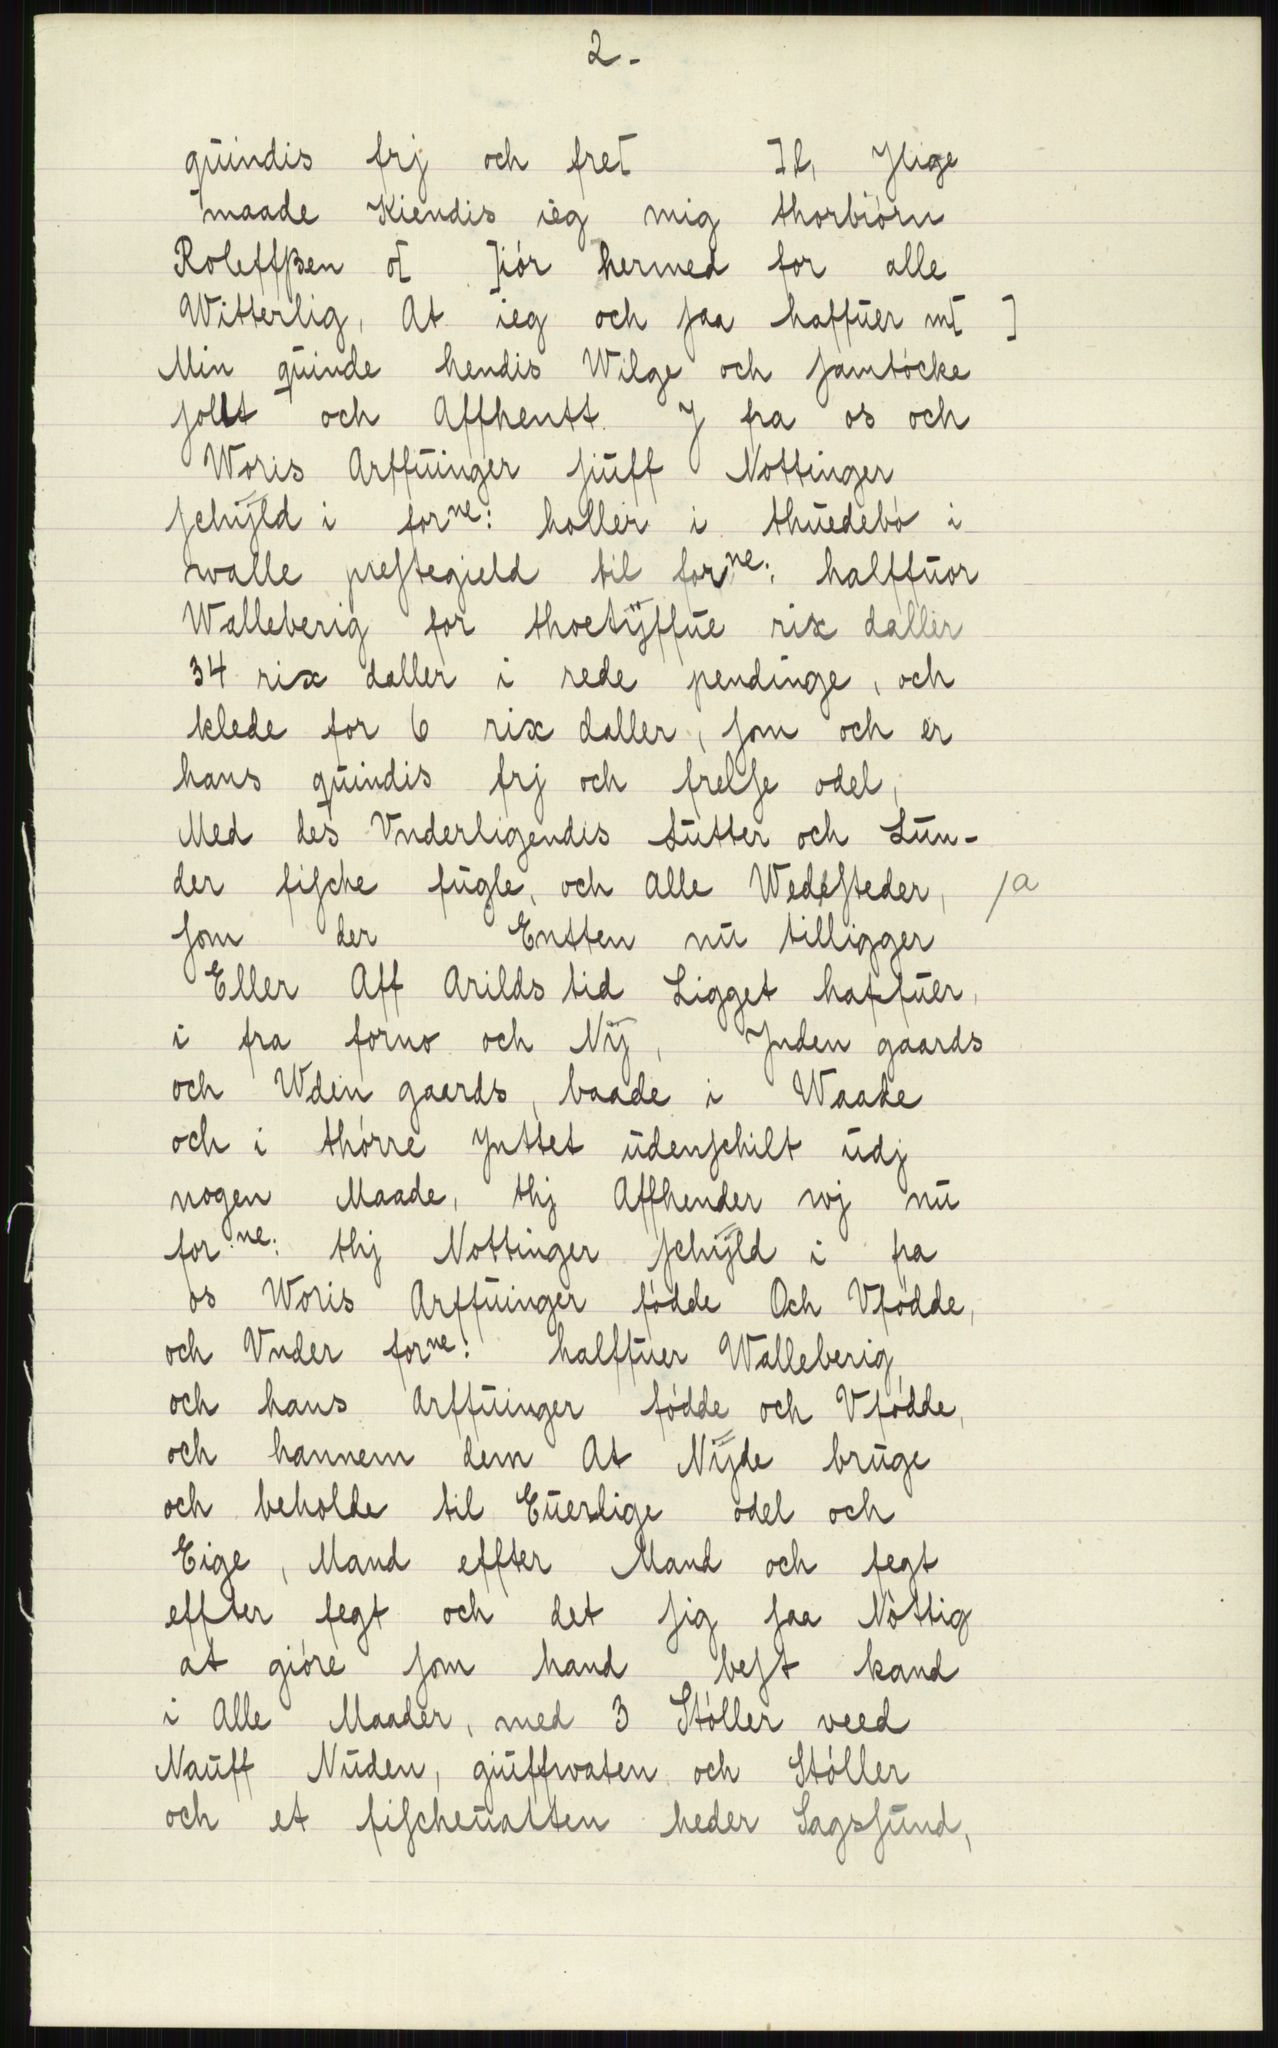 2-
quindis frj och fre[ ]l, Jlige
maade Kiendis ieg mig thorbiórn
Roleffßen o[ ]iór hermed for alle
Witterlig, At ieg och saa haffuer m[ ]
Min quinde hendis Wilge och samtócke
sollt och Affhentt J fra os och
Woris Arffuinger siuff Nottinger
schÿld i forne: holler i thuedebó i
walle prestegield til forne: halffuor
Walleberig for thoetÿffue rix daller
34 rix daller i rede pendinge, och
klede for 6 rix daller, som och er
hans quindis frj och frelse odel,
Med des Vnderligendis Lutter och Lun-
der fische fugle, och alle Wedesteder, /a
som der Entten nu tilligger
Eller Aff Arilds tid Ligget haffuer,
i fra forno och Nÿ, Jnden gaards
och Wden gaards, baade i Waade
och i thórre Jnttet udenschilt udj
nogen Maade, thj Affhender wj nu
forne: thj Nottinger schÿld i fra
os Woris Arffuinger fódde Och Vfódde,
och Vnder forne: halffuer Walleberig
och hans Arffuinger fódde och Vfódde,
och hannem dem At Nÿde bruge
och beholde til Euerlige odel och
Eige, Mand effter Mand och fegt
effter fegt och det sig saa Nóttig
at gióre som hand best kand
i Alle Maader, med 3 Stóller veed
Nauff Nuden, giuffwaten och Stóller
och et fischeuatten heder Sagssund,